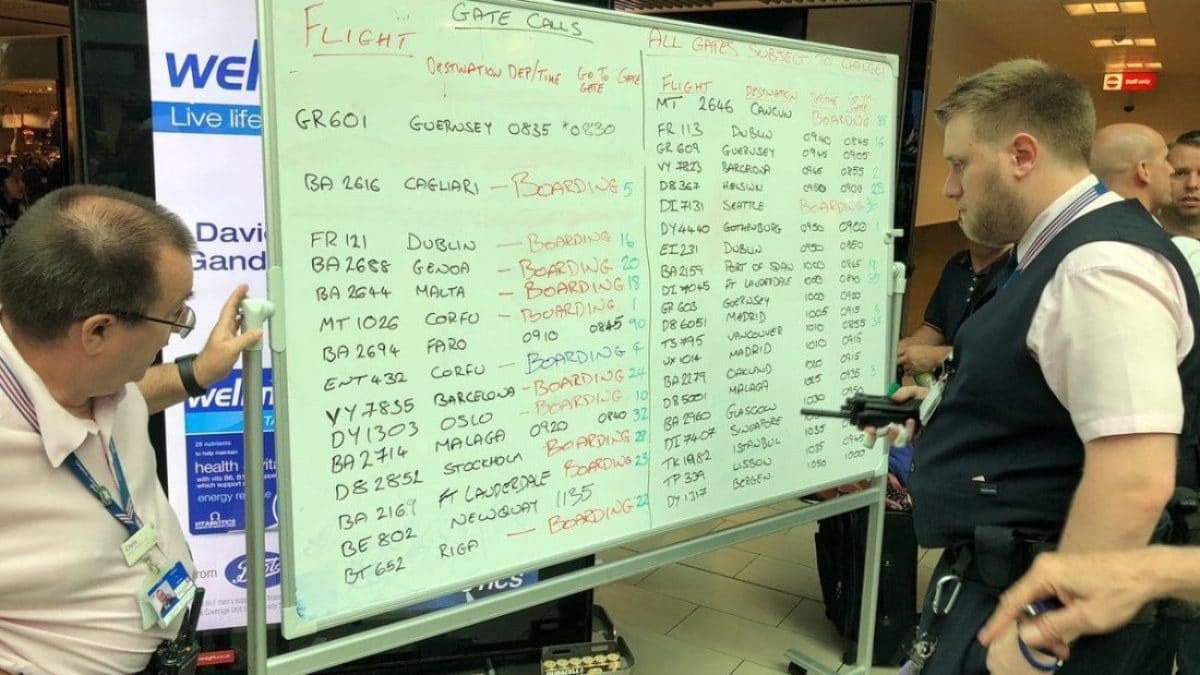 FLIGHT
GATE CALLS
DESTINATION DEP/TIME GO TO GATE GATE
GR601 GUERNSEY 0835 *0830
BA 2616 CAGLIARI — BOARDING 5
FR 121 DUBLIN — BOARDING 16
BA 2688 GENOA — BOARDING 20
BA 2644 MALTA — BOARDING 18
MT 1026 CORFU — BOARDING 1
BA 2694 FARO 0910 0845 90
ENT 432 CORFU — BOARDING 4
VY 7835 BARCELONA - BOARDING 24
DY 1303 OSLO - BOARDING 10
BA 2714 MALAGA 0920 0840 32
D8 2852 STOCKHOLM BOARDING 28
BA 2169 FT LAUDERDALE BOARDING 23
BE 802 NEWQUAY 1135
BT 652 RIGA — BOARDING 22
ALL GATES SUBJECT TO CHANGE
FLIGHT DESTINATION
MT 2646 CANCUN BOARDING
FR 113 DUBLIN 0940 0845 16
GR 609 GUERNSEY 0945 0905
VY 7823 BARCELONA 0945 0855 2
D8 367 HELSINKI 0950 0900
DI 7131 SEATTLE BOARDING
DY 4440 GOTHENBURG 0950 0900 1
EI 231 DUBLIN 0950 0850
BA 2159 PORT OF SPAIN 1000
DI 7045 FT LAUDERDALE 1000 0845
GR 603 GUERNSEY 1000 0920
D8 6051 MADRID 1005 0915
TS 795 VANCOUVER 1010 0855
UX 1014 MADRID 1010 0915
BA 2279 OAKLAND 0915
D8 5001 MALAGA 1025 0935
BA 2960 GLASGOW 1030 0950
DI 7407 SINGAPORE 1035
TK 1982 ISTANBUL 1035 0945
TP 339 LISBON 1050 1000
DY 1317 BERGEN
wel
Live life
Davi
Gand
wellm
29 nutrients
to help maintain
health
with vits B6, B
which support
energy re
VITABIOTICS
from Boots
Staff only
DURACELL